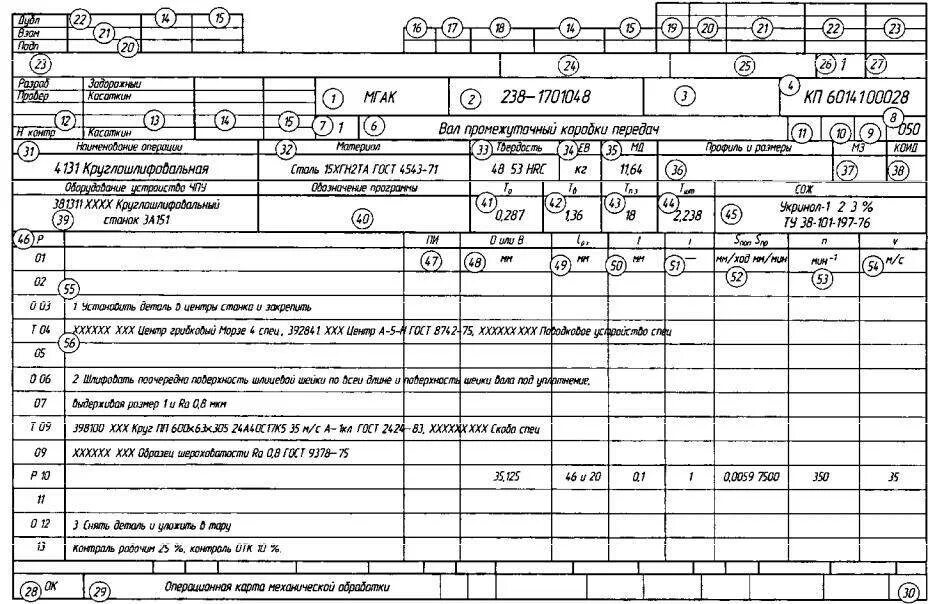 Дубл 22 14 15
Взам 21
Подп 20
16 17 18 14 15 19 20 21 22 23
23 24 25 26 1 27
Разраб Задорожный
Провер Касаткин 1 МГАК 2 238-1701048 3 4 КП 6014100028
12 13 14 15 7 1 6 Вал промежуточный коробки передач 11 10 9 8 050
Н контр Касаткин
31 Наименование операции 32 Материал 33 Твердость 34 ЕВ 35 МД Профиль и размеры МЗ КОИД
4131 Круглошлифовальная Сталь 15ХГН2ТА ГОСТ 4543-71 48 53 HRC кг 11,64 36 37 38
Оборудование устройство ЧПУ Обозначение программы То Тв Тпз Тшт СОЖ
381311 XXXX Круглошлифовальный 41 42 43 44 Укринол-1 2 3 %
39 станок 3А151 40 0,287 1,36 18 2,238 45 ТУ 38-101-197-76
46 Р ПИ D или В t i Sпоп Sпр n v
01 47 48 мм 49 мм 50 мм 51 — мм/ход мм/мин мин-1 54 м/с
52 53
02 55
О 03 1 Установить деталь в центры станка и закрепить
Т 04 XXXXXX XXX Центр грибковый Морзе 4 спец, 392841 XXX Центр А-5-Н ГОСТ 8742-75, XXXXXX XXX Поводковое устройство спец
05 56
О 06 2 Шлифовать поочередно поверхность шлицевой шейки по всей длине и поверхность шейки вала под уплотнение,
07 выдерживая размер 1 и Ra 0,8 мкм
Т 09 398100 XXX Круг ПП 600×63×305 24А40С17К5 35 м/с А-1кл ГОСТ 2424-83, XXXXXX XXX Скоба спец
09 XXXXXX XXX Образец шероховатости Ra 0,8 ГОСТ 9378-75
Р 10 35,125 46 и 20 0,1 1 0,0059 7500 350 35
11
О 12 3 Снять деталь и уложить в тару
13 Контроль рабочим 25 %, контроль ОТК 10 %.
28 ОК 29 Операционная карта механической обработки 30